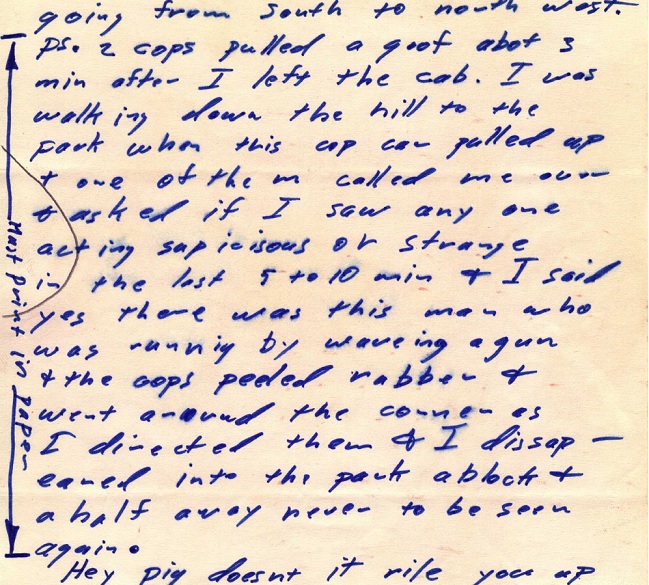 going from south to north west.
ps. 2 cops pulled a goof abot 3
min after I left the cab. I was
walking down the hill to the
park when this cop car pulled up
+ one of them called me over
& asked if I saw any one
acting sapicisous or strange
in the last 5 to 10 min & I said
yes there was this man who
was runnig by waveing a gun
& the cops peeled rubber &
went around the corner as
I directed them & I dissap –
eared into the park a block &
a half away never to be seen
again.
Hey pig doesnt it rile you up
Must print in paper